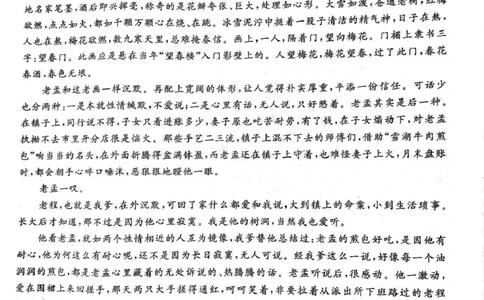 地名家笔墨,酒后即兴挥毫,称奇的是花瓣夸张、巨大,处理如心形。大雪如泼,苍道老树,红梅
欲燃,点点如火,都如千颗万颗心在烧、在跳。冰雪泥泞中挺着一股子清洁的精气神,日子在熬,
人也在熬,梅花欲燃,数九寒天里,总难掩春信。画上,一人,隔着门,望向梅花。门楣上隶书三
字:望春门。此画应是悬在当年“望春楼”入门影壁上的。人望梅花,梅花望春,过了此门,春花
春酒,春色无垠。
老孟和这老画一样沉默。再配上宽阔的体形,让人觉得朴实厚重,平添一份信任。可话少
也分两种:一是本就性情缄默,不爱说;二是心里有话,无人说,只好憋着。老孟其实是后一种。
在镇子上,同行说不得,子女只看进账多少,妻子原也吃苦耐劳,有了钱,在子女煽动下,对老孟
扶拗不去市里开分店很是恼火。那些手艺二三流,镇子上混不下去的师傅们,借助“雪湖牛肉煎
包”响当当的名头,在外面折腾得盆满钵盈,而老孟还在镇子上守着,也难怪妻子上火,月末盘账
时,都会朝手心啐口唾沫,恶狠狠地瞪他一眼。
老孟一叹。
老程,也就是我爹,在外沉默,可回了家什么都爱和我说,大到镇上的命案,小到生活琐事。
长大后才知道,那不过是因为他心里寂寞。我是他的树洞,当然我也爱听。
他看老孟,就如两个性情相近的人互为镜像,我爹替他总结过:老孟的煎包好吃,是因他有
耐心,他为何这么有耐心呢,还不是因为长日寂寞,无人可说。经我爹这么一说,好像每一个油
润润的煎包,都是老孟心里藏着的无处诉说的、热腾腾的话。老孟听说后,很感动。他一激动,
爱在围裙上来回搓手,那天两只大手搓得通红,呵呵笑着,非要拉着从派出所下班路过的老程